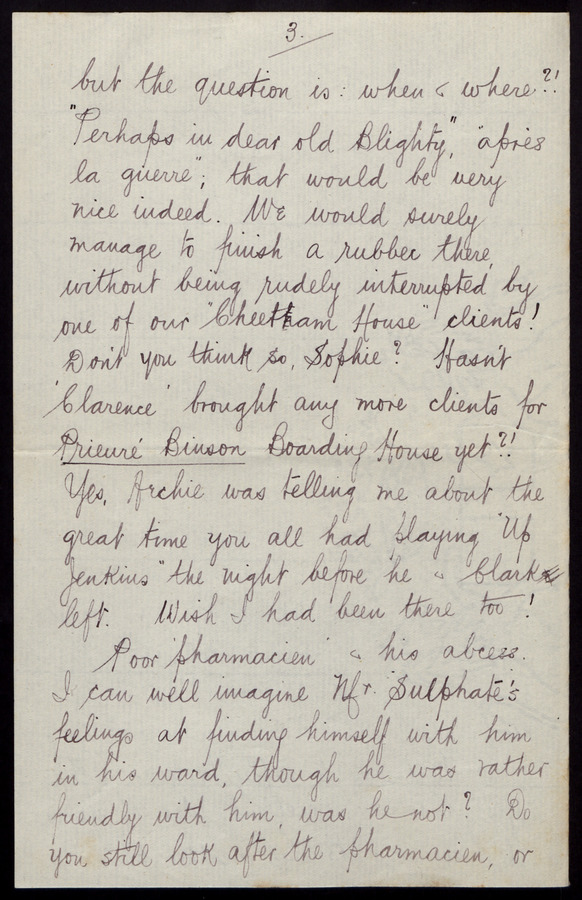 3.
but the question is: when & where?!
"Perhaps in dear old Blighty", "après
la guerre"; that would be very
nice indeed. We would surely
manage to finish a rubber there,
without being rudely interrupted by
one of our "Cheetham House" clients!
Don't you think so, Sophie? Hasn't
'Clarence' brought any more clients for
Prieuré Binson Boarding House yet?!
Yes, Archie was telling me about the
great time you all had playing "Up
Jenkins" the night before he & Clark
left. Wish I had been there too!
Poor 'pharmacien' & his abcess.
I can well imagine Mr. 'Sulphate's
feelings at finding himself with him
in his ward, though he was rather
friendly with him, was he not? Do
you still look after the pharmacien, or